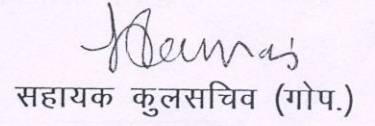 सहायक कुलसचिव (गोप.)